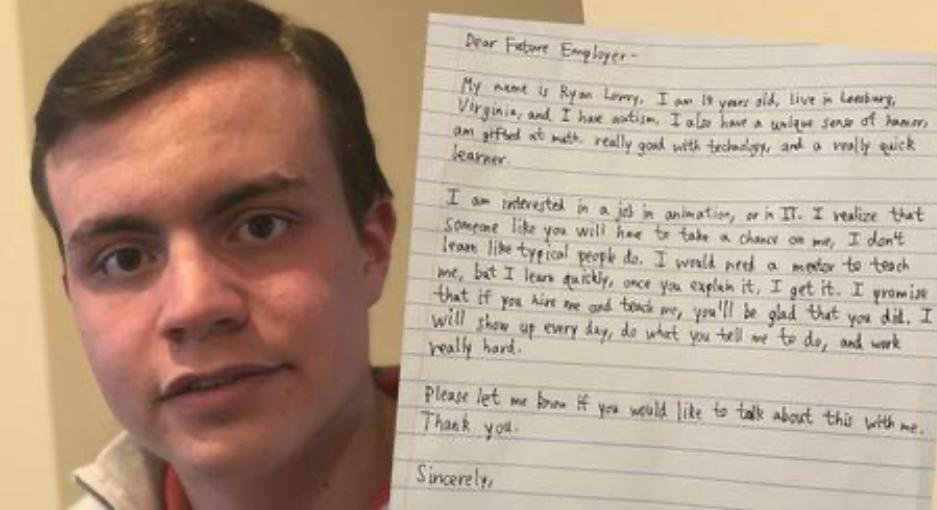 Dear Future Employer-
My name is Ryan Lowry, I am 19 years old, live in Leesburg,
Virginia, and I have autism. I also have a unique sense of humor,
am gifted at math, really good with technology, and a really quick
learner.
I am interested in a job in animation, or in IT. I realize that
someone like you will have to take a chance on me, I don't
learn like typical people do. I would need a mentor to teach
me, but I learn quickly, once you explain it, I get it. I promise
that if you hire me and teach me, you'll be glad that you did. I
will show up every day, do what you tell me to do, and work
really hard.
Please let me know if you would like to talk about this with me.
Thank you.
Sincerely,